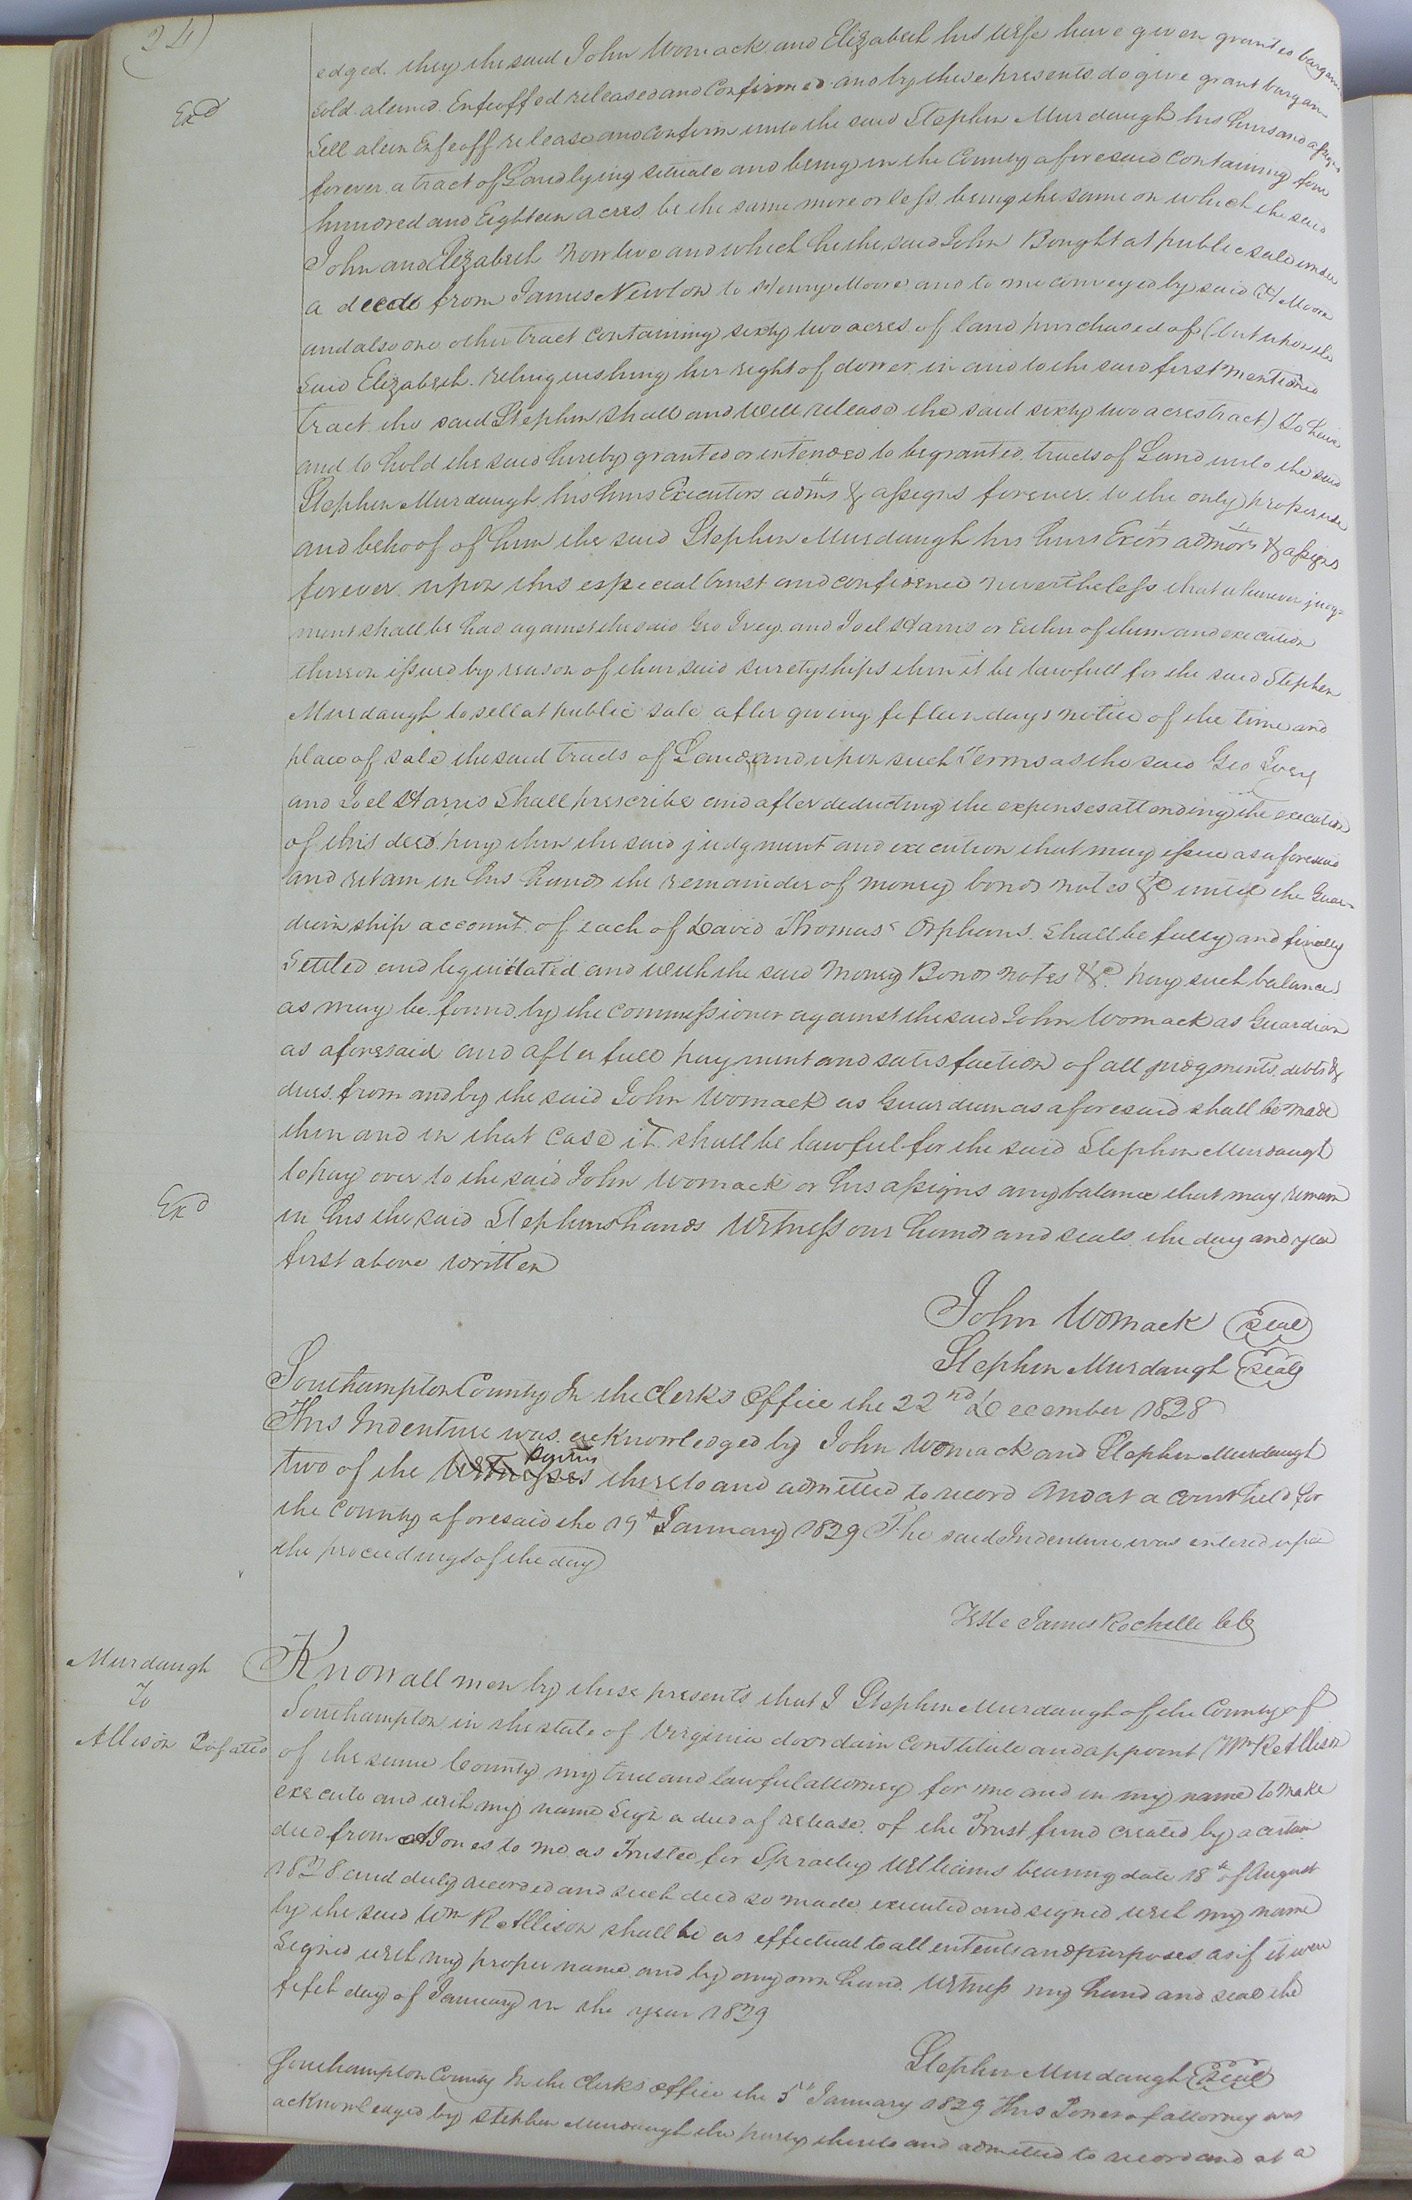 24)
Exd
edged. they the said John Womack and Elizabeth his wife have given granted bargain
sold aliened Enfeoffed released and Confirmed and by these presents do give grant bargain
Sell alien Enfeoff release and confirm unto the said Stephen Murdaugh his heirs and assigns
forever a tract of Land lying situate and being in the County aforesaid containing four
hundred and Eighteen acres be the same more or less being the same on which the said
John and Elizabeth now live and which he the said John Bought at public sale under
a deed from James Newton to Henry Moore and to me conveyed by said H Moore
and also one other tract containing sixty two acres of land purchased of (but upon the
said Elizabeth relinquishing her right of dower in and to the said first mentioned
tract the said Stephen shall and will release the said sixty two acres tract) to have
and to hold the said hereby granted or intended to be granted tracts of Land unto the said
Stephen Murdaugh his heirs Executors adms & assigns forever to the only proper use
and behoof of him the said Stephen Murdaugh his heirs Exors admors & assigns
forever upon this especial trust and confidence nevertheless that whenever judg-
ment shall be had against the said Geo Ivey and Joel Harris or Either of them and execution
thereon issued by reason of their said suretyships then it be lawfull for the said Stephen
Murdaugh to sell at public sale after giving fifteen days notice of the time and
place of sale the said tracts of Land and upon such Terms as the said Geo Ivey
and Joel Harris Shall prescribe and after deducting the expenses attending the execution
of this deed pay then the said judgment and execution that may issue as aforesaid
and retain in his hands the remainder of money bonds notes &c until the Guar-
dianship account of each of David Thomas's Orphans shall be fully and finally
Settled and liquidated and with the said Money Bonds notes &c pay such balance
as may be found by the commissioner against the said John Womack as Guardian
as aforesaid and after full payment and satisfaction of all judgments debts &
dues from and by the said John Womack as Guardian as aforesaid shall be made
then and in that case it shall be lawful for the said Stephen Murdaugh
to pay over to the said John Womack or his assigns any balance that may remain
Exd
in his the said Stephens hands Witness our hands and seals the day and year
first above written
John Womack (Seal)
Stephen Murdaugh (Seal)
Southampton County In the Clerks Office the 22nd December 1828
This Indenture was acknowledged by John Womack and Stephen Murdaugh
parties
two of the Witnesses thereto and admitted to record And at a court held for
the County aforesaid the 19th January 1829 The said Indenture was entered upon
the proceedings of the day
Teste James Rochelle Clk
Murdaugh
To
Allison Pof atto
Know all men by these presents that I Stephen Murdaugh of the County of
Southampton in the state of Virginia do ordain constitute and appoint Wm R Allison
of the same County my true and lawful attorney for me and in my name to make
execute and with my name Sign a deed of release of the Trust fund created by a certain
deed from A Jones to me as Trustee for Spratley Williams bearing date 18th of August
1828 and duly recorded and such deed so made executed and signed with my name
by the said Wm R Allison shall be as effectual to all intents and purposes as if it were
Signed with my proper name and by my own hand. Witness my hand and seal the
fifth day of January in the year 1829
Stephen Murdaugh (Seal)
Southampton County In the Clerks office the 5th January 1829 This Power of attorney was
acknowledged by Stephen Murdaugh the party thereto and admitted to record and at a